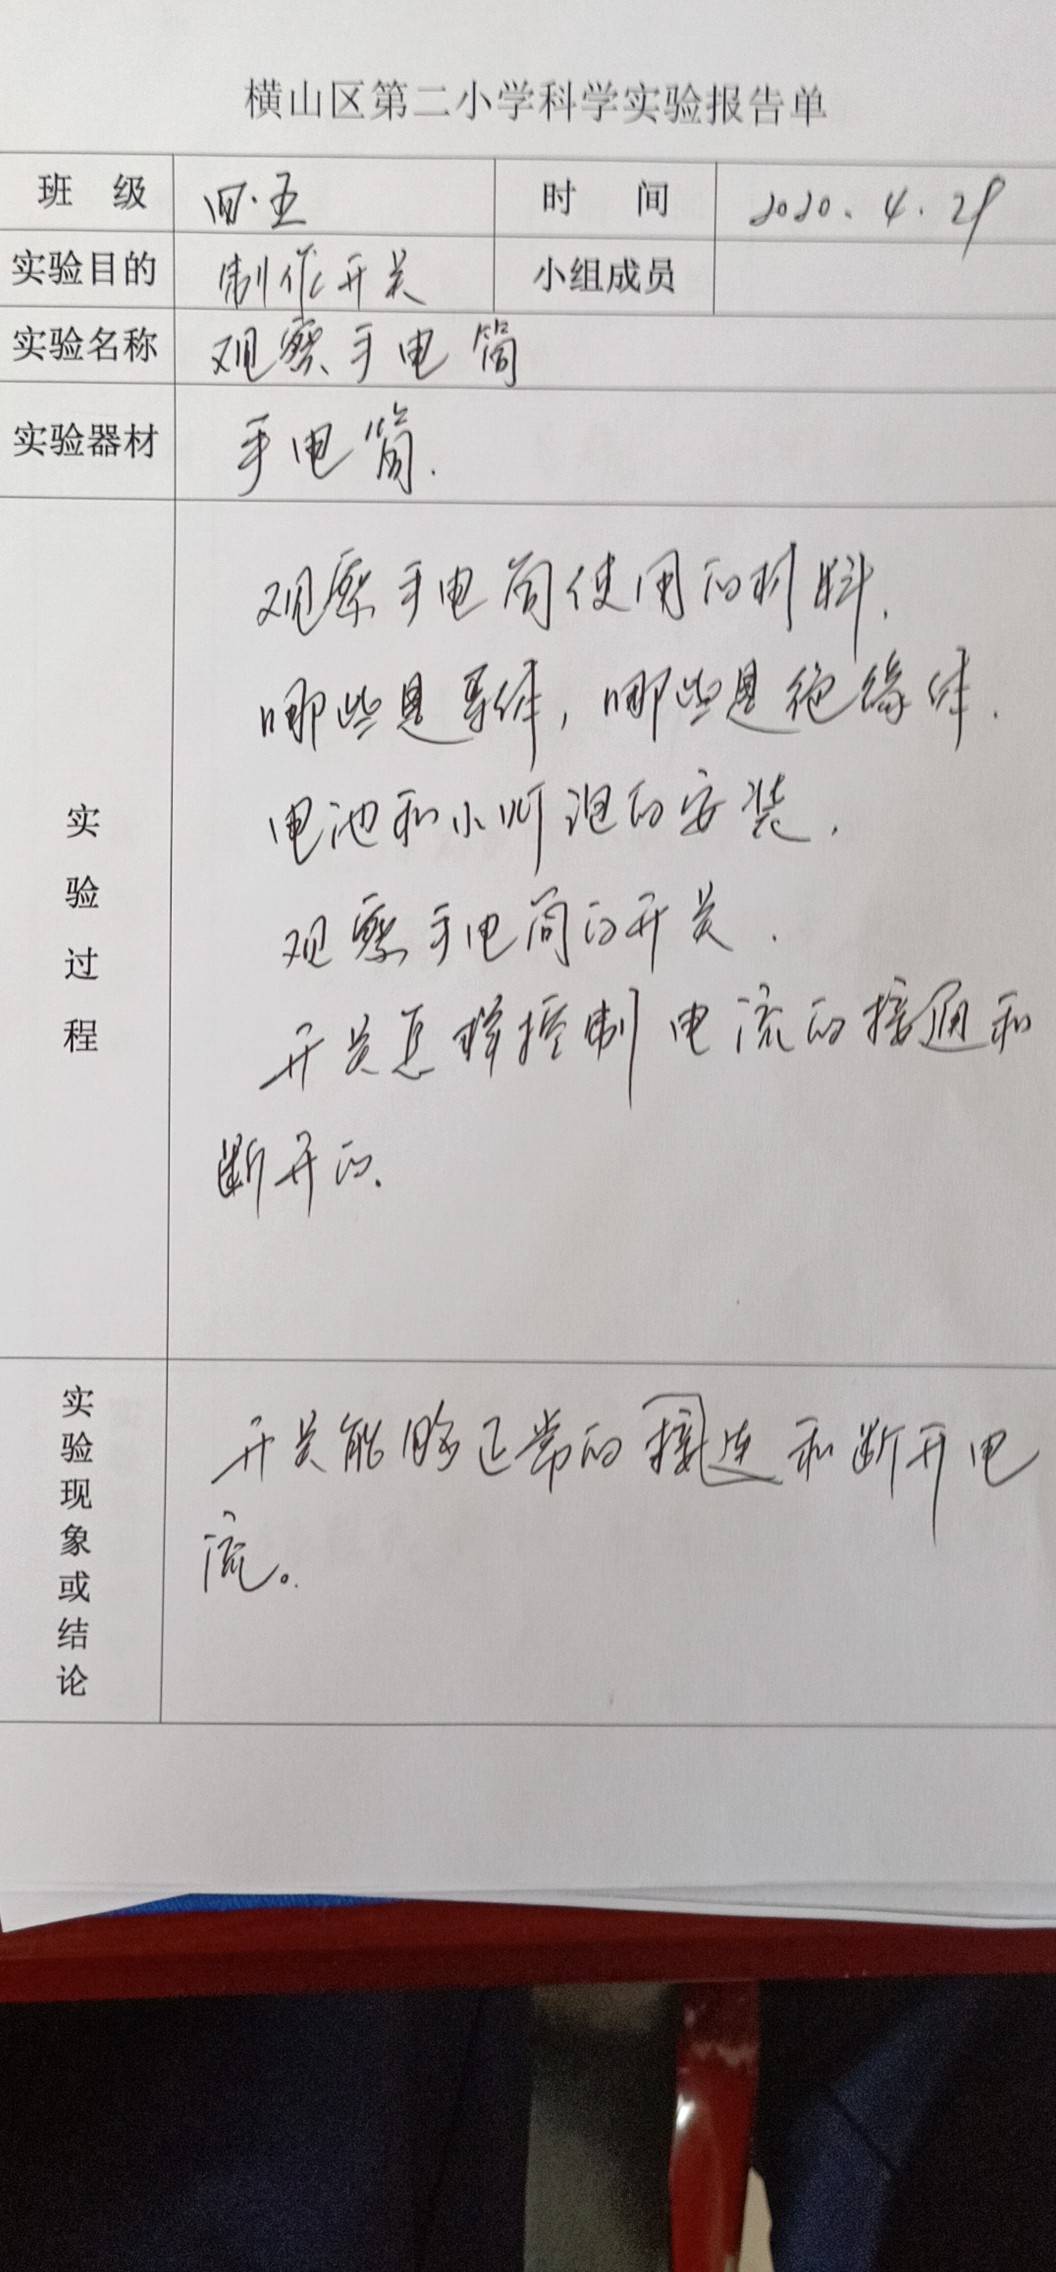 横山区第二小学科学实验报告单
班 级 四.五 时 间 2020.4.29
实验目的 制作开关 小组成员
实验名称 观察手电筒
实验器材 手电筒.
实验过程
观察手电筒使用的材料.
哪些是导体,哪些是绝缘体.
电池和小灯泡的安装.
观察手电筒的开关.
开关怎样控制电流的接通和
断开的.
实验现象或结论
开关能够正常的接连和断开电
流。